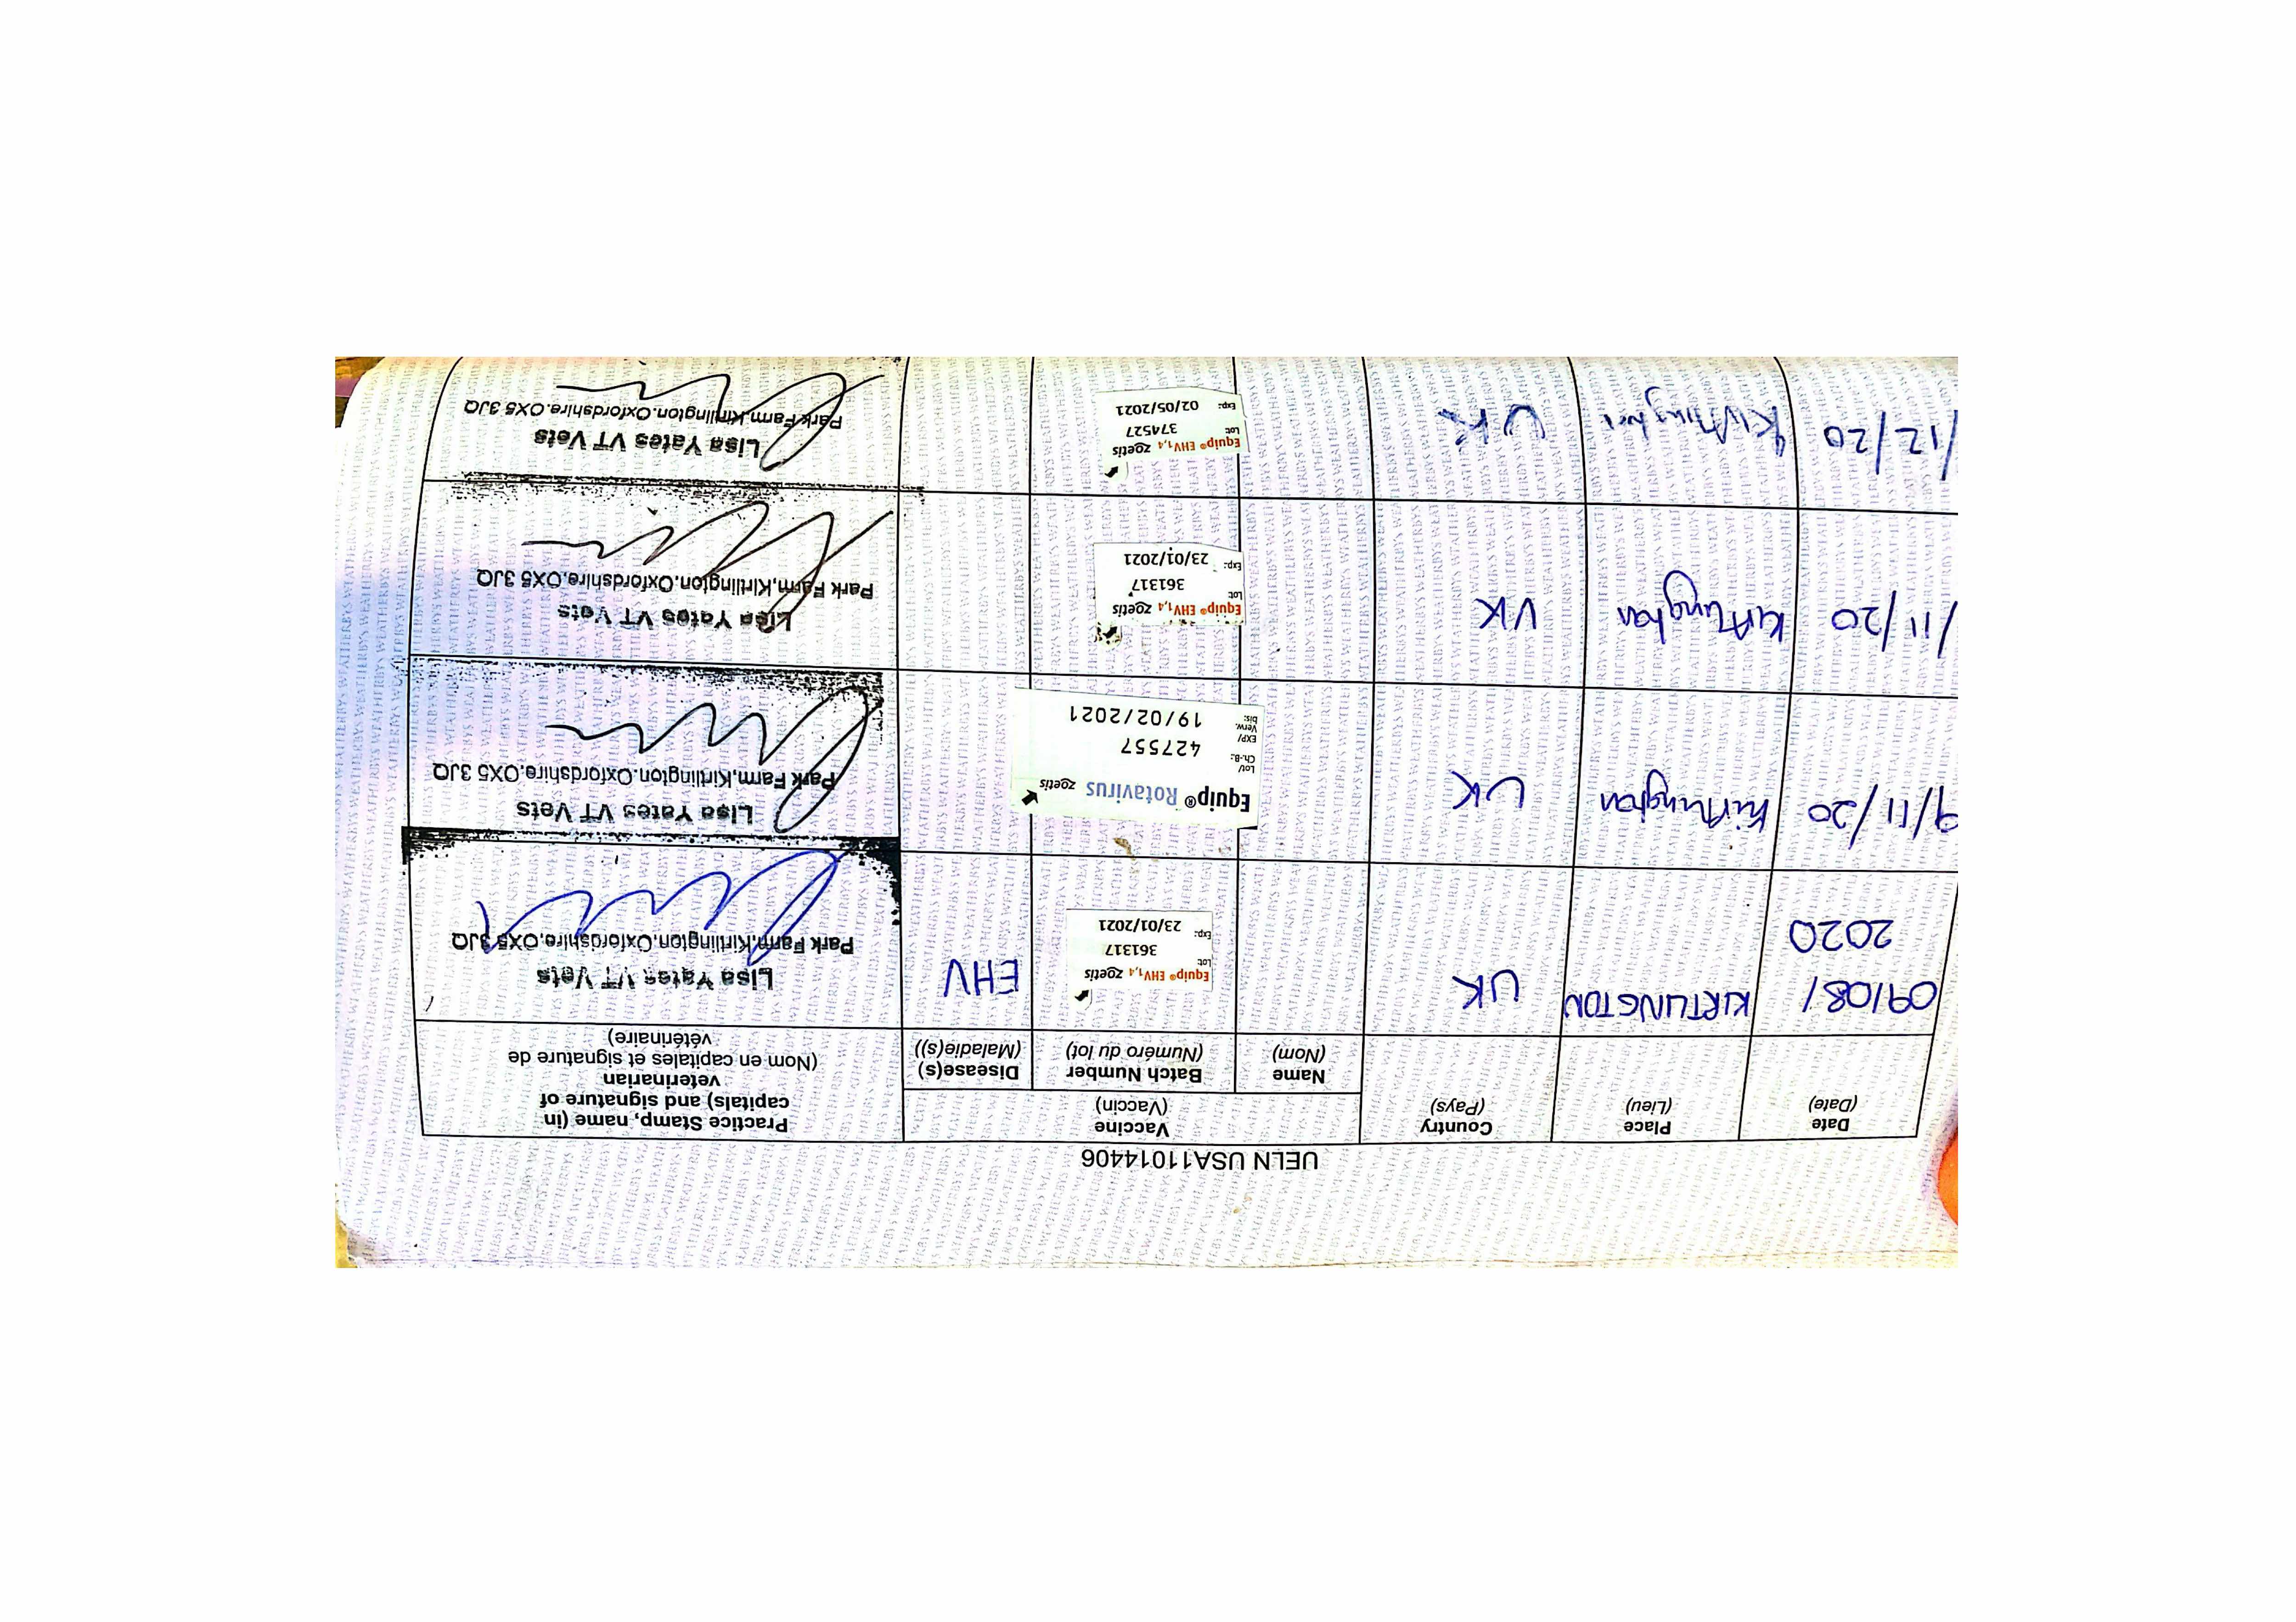 UELN USA11014406
Date
(Date)
Place
(Lieu)
Country
(Pays)
Vaccine
(Vaccin)
Name
(Nom)
Batch Number
(Numéro du lot)
Disease(s)
(Maladie(s))
Practice Stamp, name (in
capitals) and signature of
veterinarian
(Nom en capitales et signature de
vétérinaire)
09/08/
2020
KIRTLINGTON
UK
Equip® EHV1,4 zoetis
Lot: 361317
Exp.: 23/01/2021
EHV
Lisa Yates VT Vets
Park Farm,Kirtlington.Oxfordshire.OX5 3JQ
9/11/20
Kirtlington
UK
Equip® Rotavirus zoetis
Lot/
Ch.-B.: 427557
EXP/
Verw.
bis: 19/02/2021
Lisa Yates VT Vets
Park Farm,Kirtlington.Oxfordshire.OX5 3JQ
/11/20
Kirtlington
UK
Equip® EHV1,4 zoetis
Lot: 361317
Exp.: 23/01/2021
Lisa Yates VT Vets
Park Farm,Kirtlington.Oxfordshire.OX5 3JQ
/12/20
Kirtlington
UK
Equip® EHV1,4 zoetis
Lot: 374527
Exp.: 02/05/2021
Lisa Yates VT Vets
Park Farm,Kirtlington.Oxfordshire.OX5 3JQ